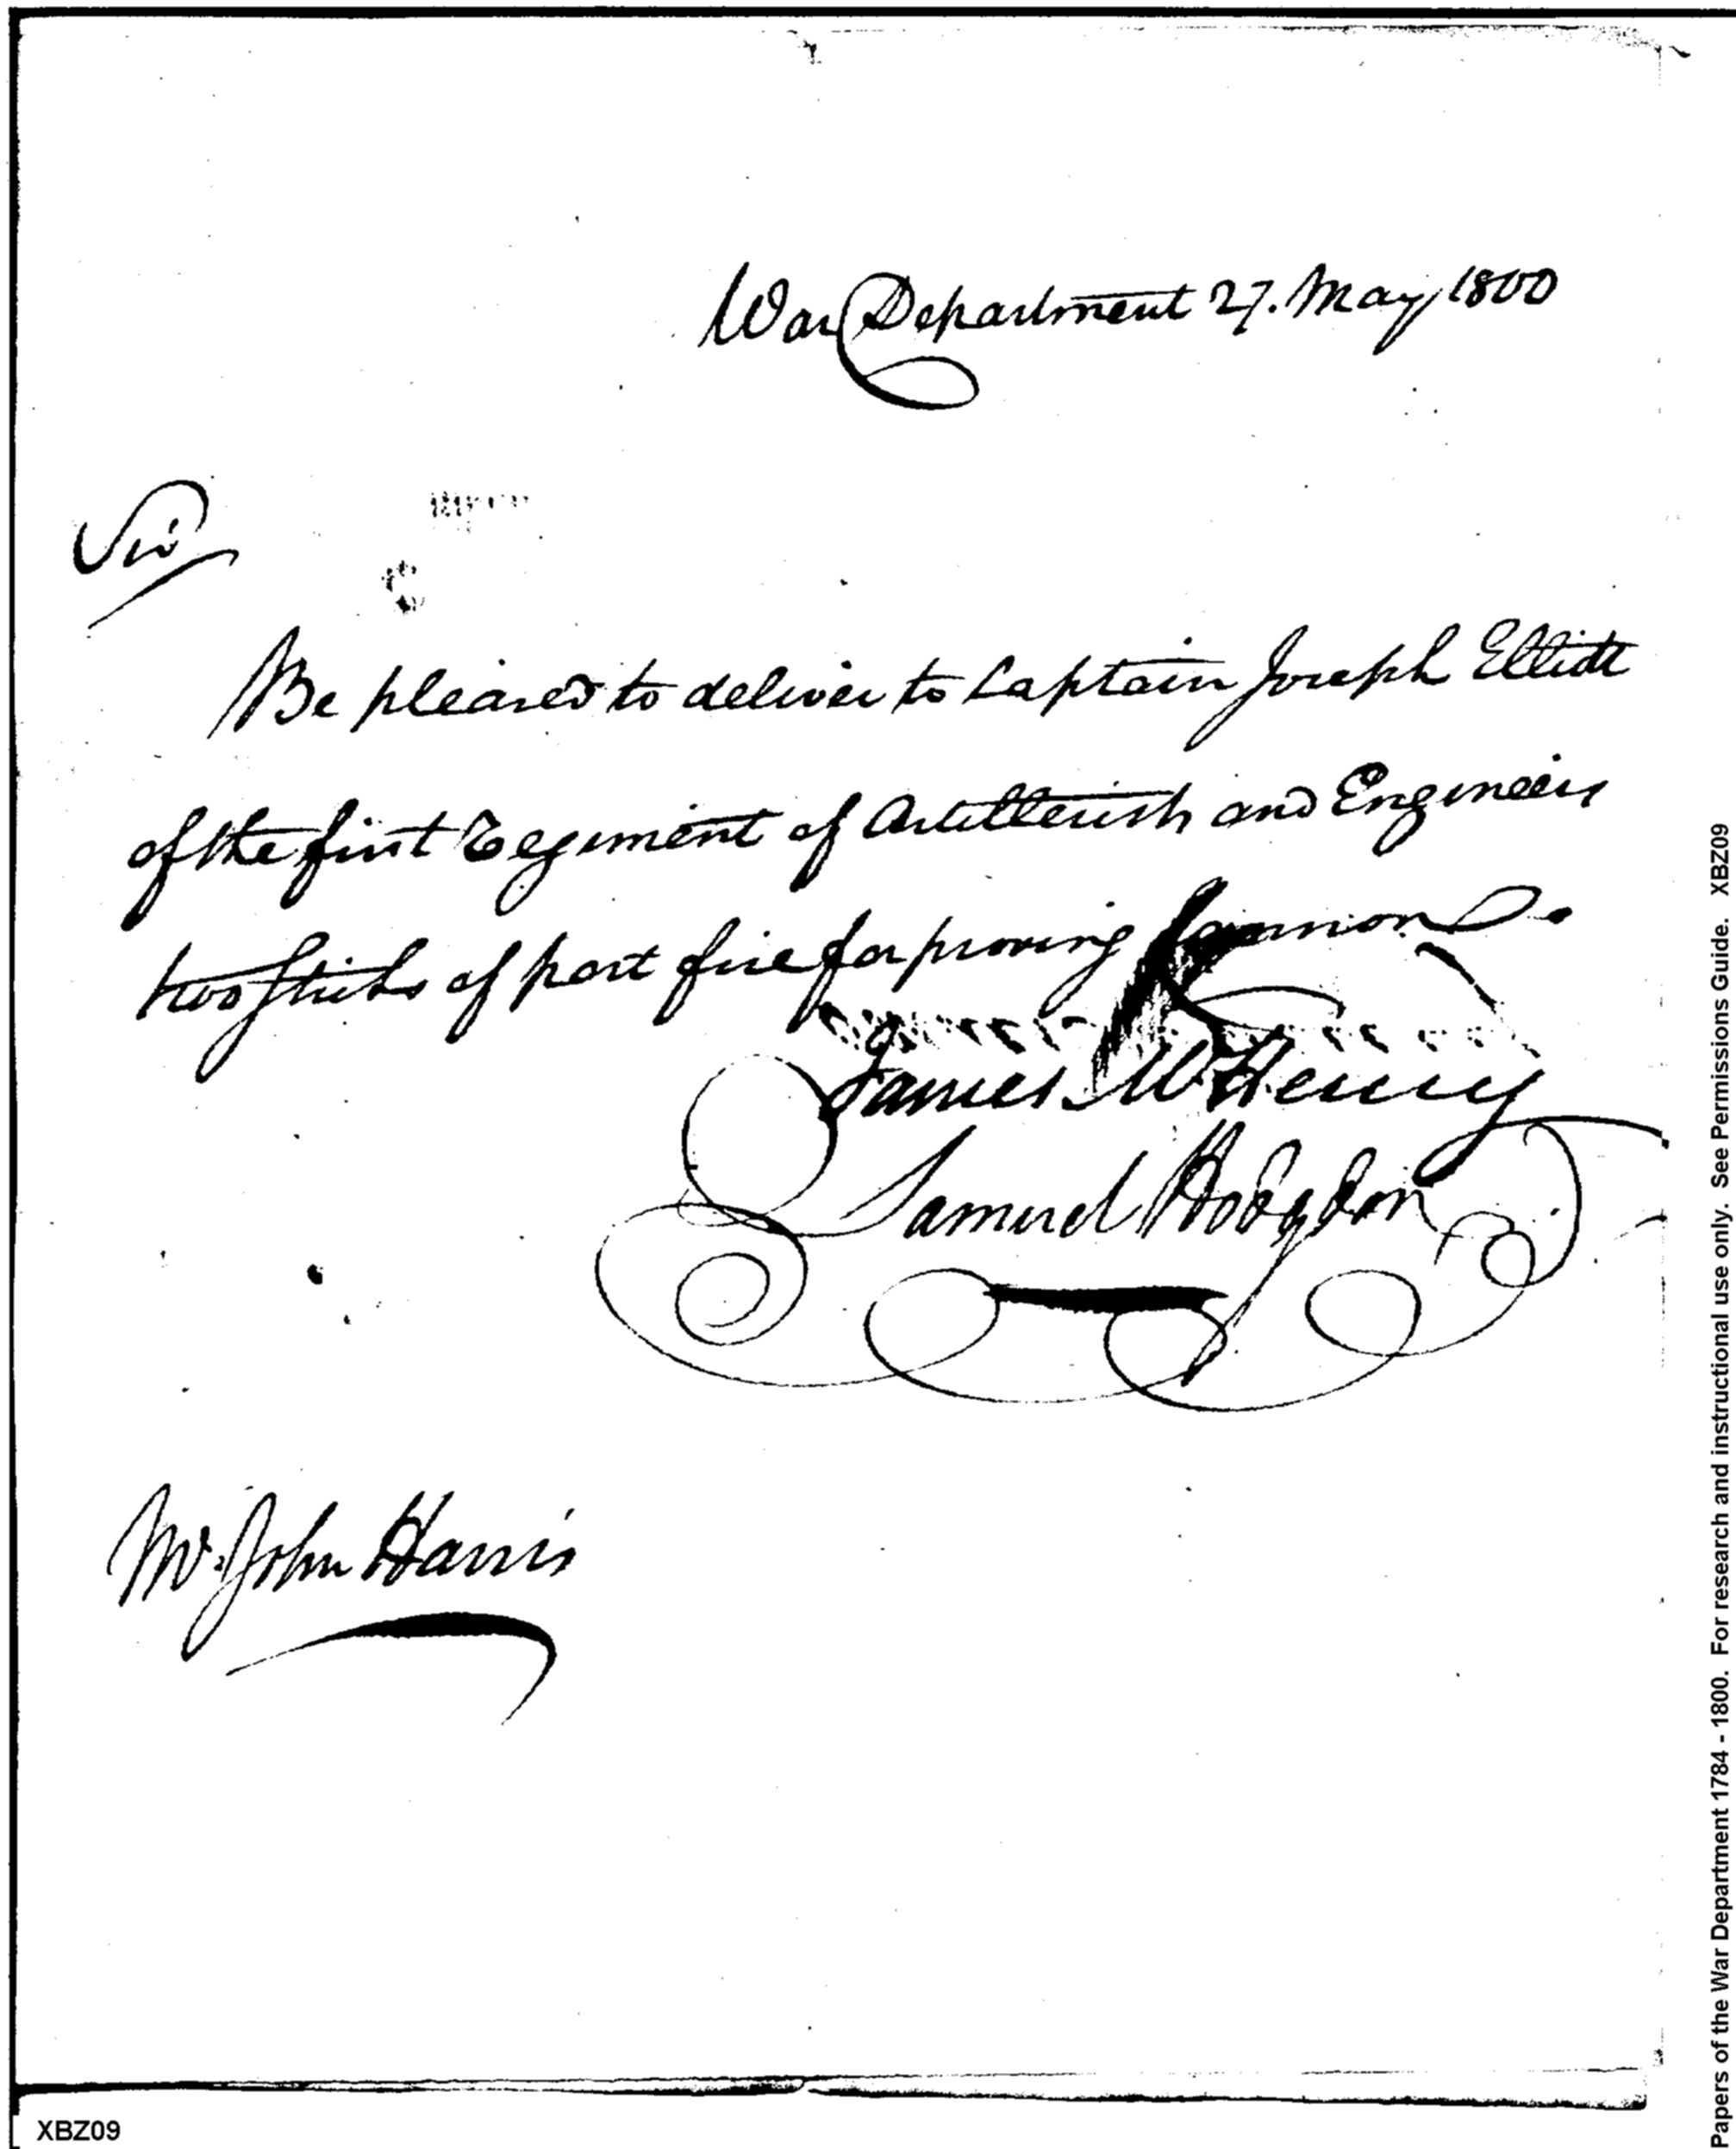 War Department 27. May 1800
Sir
Be pleased to deliver to Captain Joseph Elliott
of the first Regiment of Artillerists and Engineers
two sticks of port fire for proving Cannon
James McHenry
Samuel Hodgdon
Mr. John Harris
XBZ09
Papers of the War Department 1784 - 1800. For research and instructional use only. See Permissions Guide. XBZ09